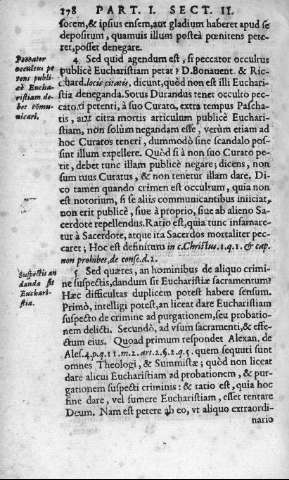 278 PART. I. SECT. II.
sorem, & ipsius ensem, aut gladium haberet apud se
depositum, quamuis illum postea pœnitens pete-
ret, posset denegare.
Peccator
occultus pe
tens publi-
cè Eucha-
ristiam de-
bet cõmu-
nicari.
4. Sed quid agendum est, si peccator occultus
publicè Eucharistiam petat? D. Bonauent. & Ric-
huard. locis citatis, dicunt, quòd non est illi Eucha-
ristia deneganda. Sotus Durandus tenet occulto pec-
cato, ti petenti, à suo Curato, extra tempus Pascha-
tis, aut citra mortis articulum publicè Euchari-
stiam, non solùm negandam esse, verùm etiam ad
hoc Curatos teneri, dummodò sine scandalo pos-
sint illum expellere. Quòd si à non suo Curato pe-
tit, debet tunc illam publicè negare; dicens, non
sum tuus Curatus, & non teneor illam dare. Di-
co tamen quando crimen est occultum, quia non
est notorium, si se aliis communicantibus iniiciat,
non erit publicè, siue à proprio, siue ab alieno Sa-
cerdote repellendus. Ratio est, quia tunc infamare-
tur à Sacerdote, atque ita Sacerdos mortaliter pec-
caret; Hoc est definitum in c. Christus. 1. q. 1. & cap.
non prohibet, de conse. d. 2.
Suspectis an
danda sit
Euchari-
stia.
5. Sed quæres, an hominibus de aliquo crimi-
ne suspectis, dandum sit Eucharistiæ sacramentum?
Hæc difficultas duplicem potest habere sensum.
Primò, intelligi potest, an liceat dare Eucharistiam
suspecto de crimine ad purgationem, seu probatio-
nem delicti. Secundò, ad vsum sacramenti, & effe-
ctum eius. Quoad primum respondet Alexan. de
Ales. 4. p. q. 11. m. 2. art. 2. §. 2. q. 5. quem sequuti sunt
omnes Theologi, & Summistæ; quòd non liceat
dare alicui Eucharistiam ad probationem, & pur-
gationem suspecti criminis: & ratio est, quia hoc
fine dare, vel sumere Eucharistiam, esset tentare
Deum. Nam est petere ab eo, vt aliquo extraordi-
nario